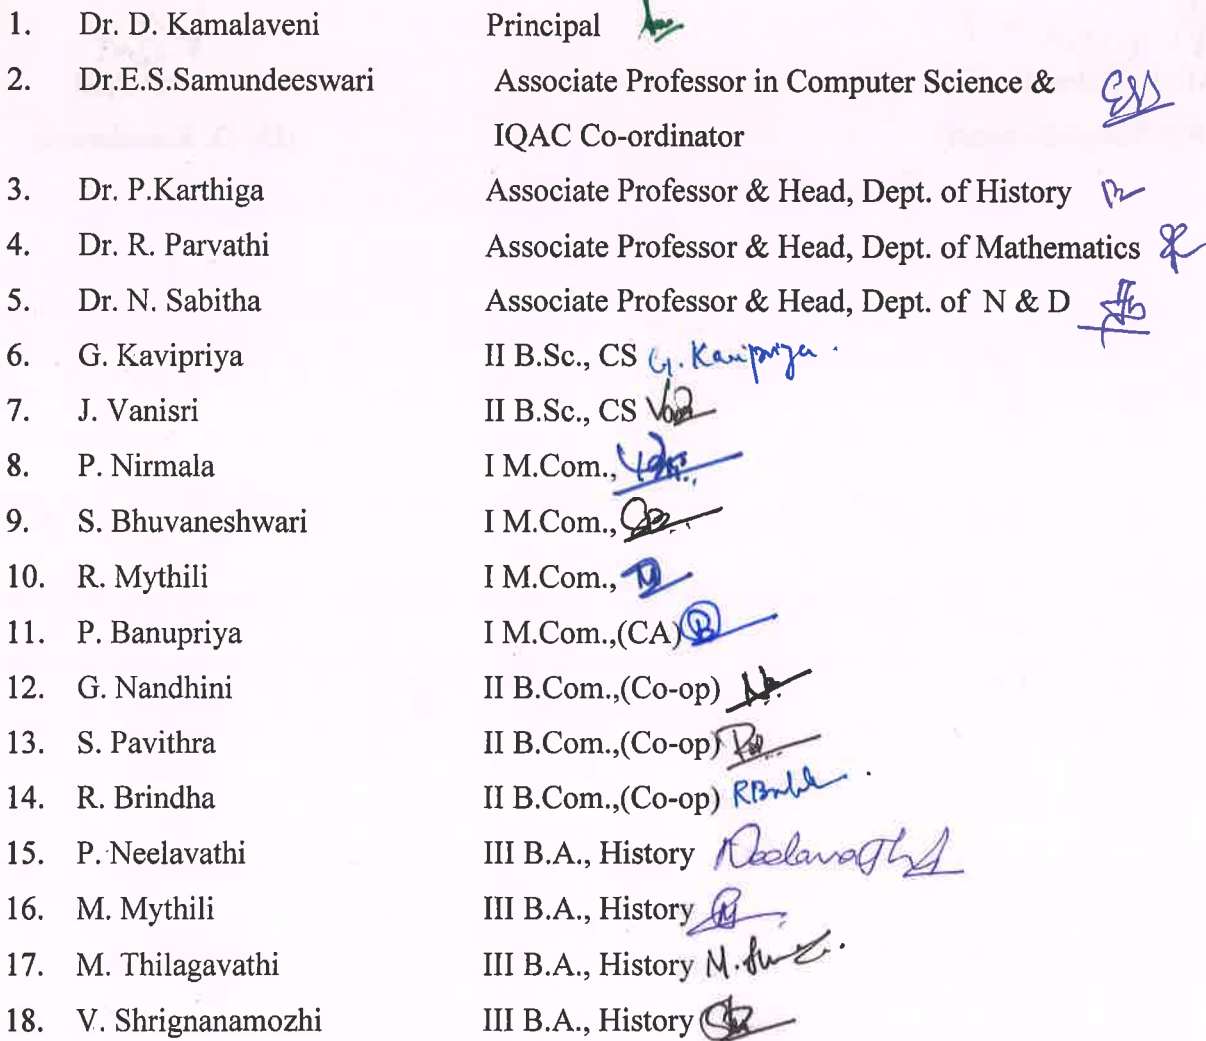 1. Dr. D. Kamalaveni Principal
2. Dr.E.S.Samundeeswari Associate Professor in Computer Science &
IQAC Co-ordinator
3. Dr. P.Karthiga Associate Professor & Head, Dept. of History
4. Dr. R. Parvathi Associate Professor & Head, Dept. of Mathematics
5. Dr. N. Sabitha Associate Professor & Head, Dept. of N & D
6. G. Kavipriya II B.Sc., CS G. Kavipriya.
7. J. Vanisri II B.Sc., CS
8. P. Nirmala I M.Com.,
9. S. Bhuvaneshwari I M.Com.,
10. R. Mythili I M.Com.,
11. P. Banupriya I M.Com.,(CA)
12. G. Nandhini II B.Com.,(Co-op)
13. S. Pavithra II B.Com.,(Co-op)
14. R. Brindha II B.Com.,(Co-op)
15. P. Neelavathi III B.A., History
16. M. Mythili III B.A., History
17. M. Thilagavathi III B.A., History
18. V. Shrignanamozhi III B.A., History